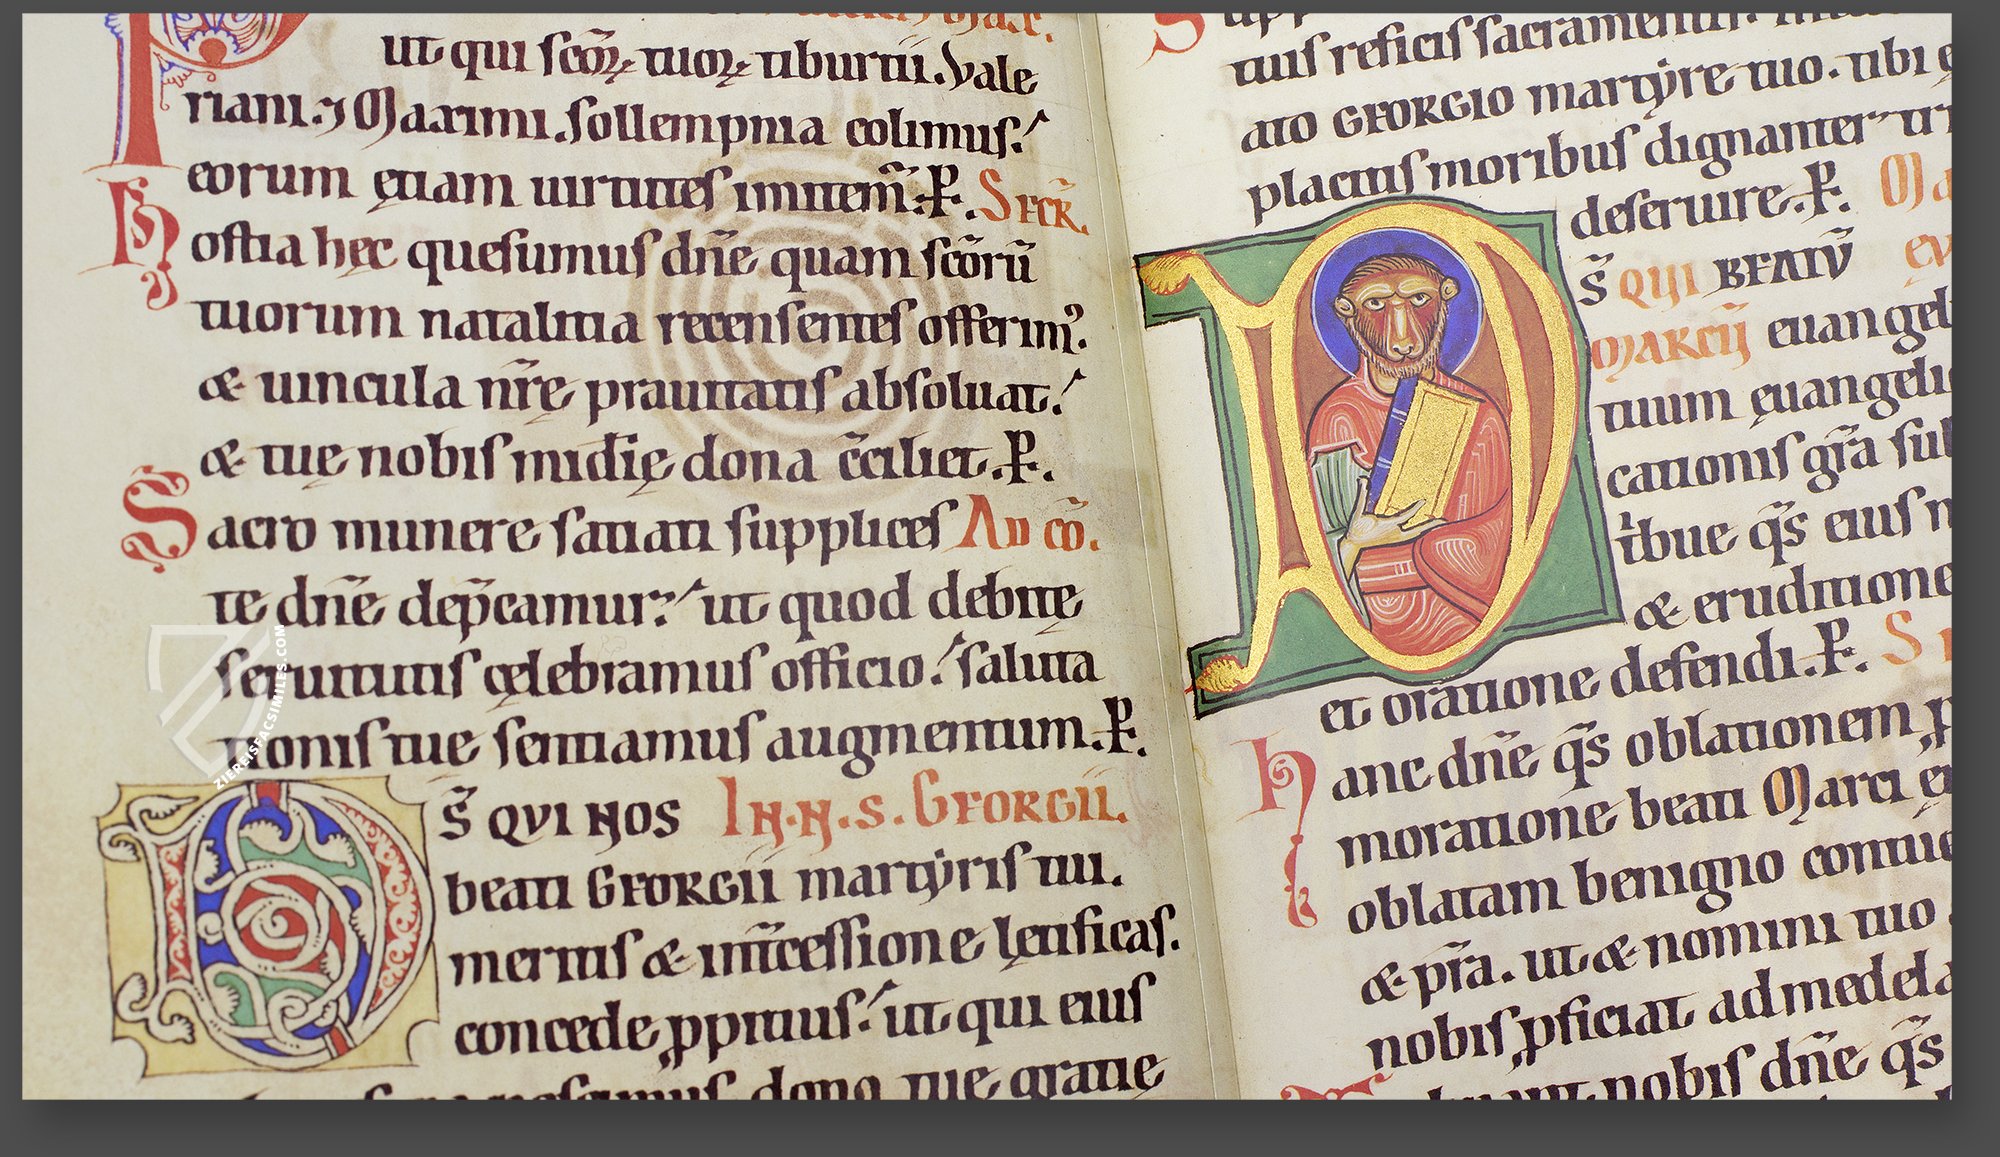 ut qui scõꝝ tuoꝝ tiburtii. Vale
riani. ⁊ Maximi. sollempnia colimus.
eorum ętiam uirtutes imitem̃. P̵. SECR̃.
Hostia hęc quesumus dñe quam scõrũ
tuorum natalitia recensentes offerim᷒.
& uincula nr̃ę prauitatis absoluat.
& tuę nobis mĩdię dona c̃ciliet. P̵.
Sacro munere satiati supplices AD CÕ.
te dñe dep̃camur. ut quod debitę
seruitutis cęlebramus officio. saluta
tionis tue sentiamus augmentum. P̵.
DS̃ QVI NOS IN. N. S. GEORGII.
beati GEORGII martyris tui.
meritis & int̃cessione lętificas.
concede ꝓpitius. ut qui eius
dona tue gratie
tuis reficis sacramentis.
ato GEORGIO martyre tuo. tibi
placitis moribus dignanter
deseruire. P̵.
DS̃ QUI BEATV̄
MARCŨ euangel
tuum ęuangeli
cationis gr̃a sub
t̾bue q̃s eius
& eruditione
et oratione defendi. P̵. S
Hanc dñe q̃s oblationem
moratione beati Marci
oblatam benigno
& pr̃a. ut & nomini tuo
nobis ꝓficiat ad medela
nobis dñe q̃s
ZIEREISFACSIMILES.COM